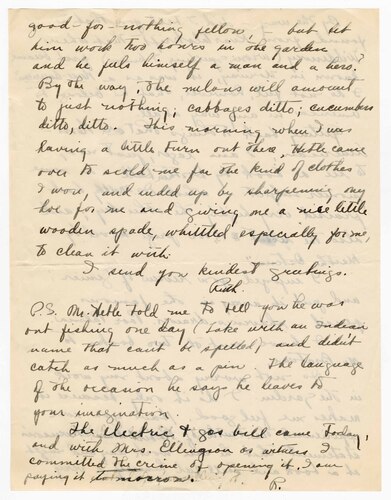 good-for-nothing fellow, but let
him work two hours in the garden
and he feels himself a man and a hero?
By the way, the melons will amount
to just nothing; cabbages ditto; cucumbers
ditto, ditto. This morning when I was
having a little turn out there, Hetle came
over to scold me for the kind of clothes
I wore, and ended up by sharpening my
hoe for me and giving me a nice little
wooden spade, whittled especially for me,
to clean it with.
I send you kindest greetings.
Ruth.
P.S. Mr. Hetle told me to tell you he was
out fishing one day (Lake with an Indian
name that can't be spelled) and didn't
catch as much as a pin. The language
of the occasion he says he leaves to
your imagination.
The electric & gas bill came today,
and with Mrs. Ellingson as witness I
committed the crime of opening it, I am
paying it tomorrow.
R.